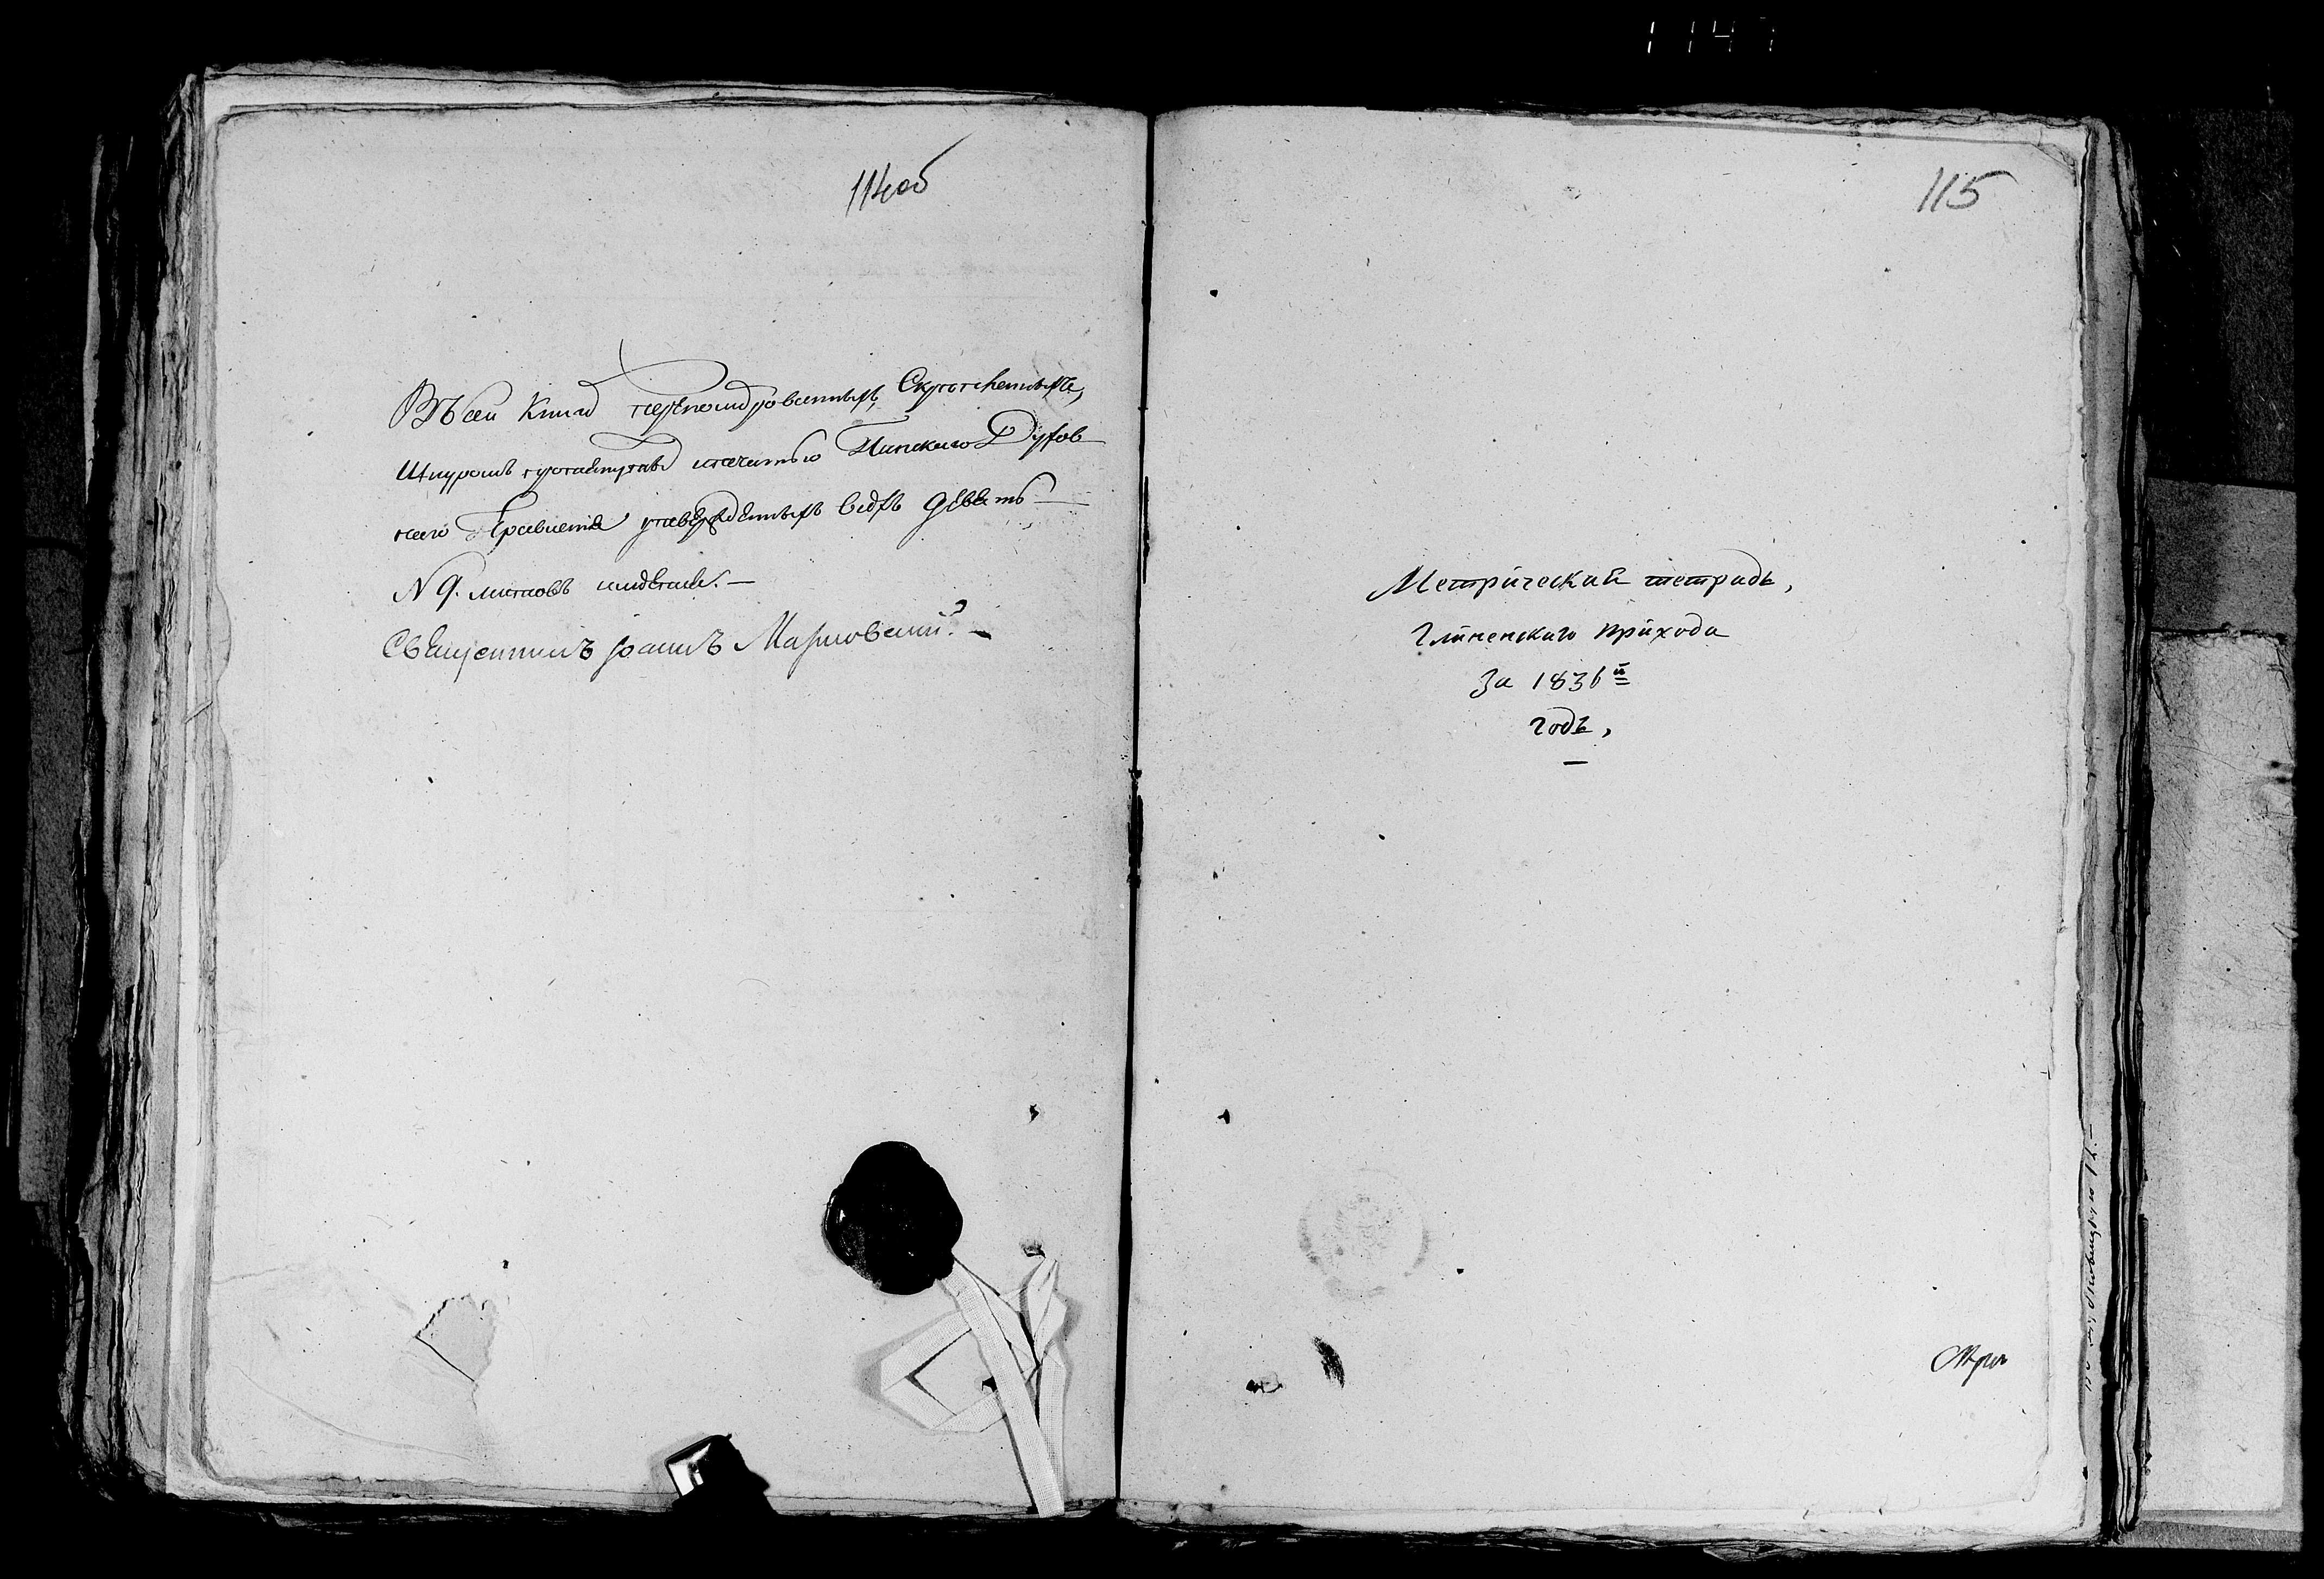 1147
114об
Въ сей Книгѣ перенумерованныхъ, Скрѣпленныхъ,
Шнуромъ и печатью Пинского Духов
наго Правленія утвержденныхъ всѣхъ девять
N 9. листовъ имѣется. —
Священникъ Іоаннъ Марковскій. —
115
Метрическая тетрадь,
Глиненскаго прихода
За 1836й
годъ,